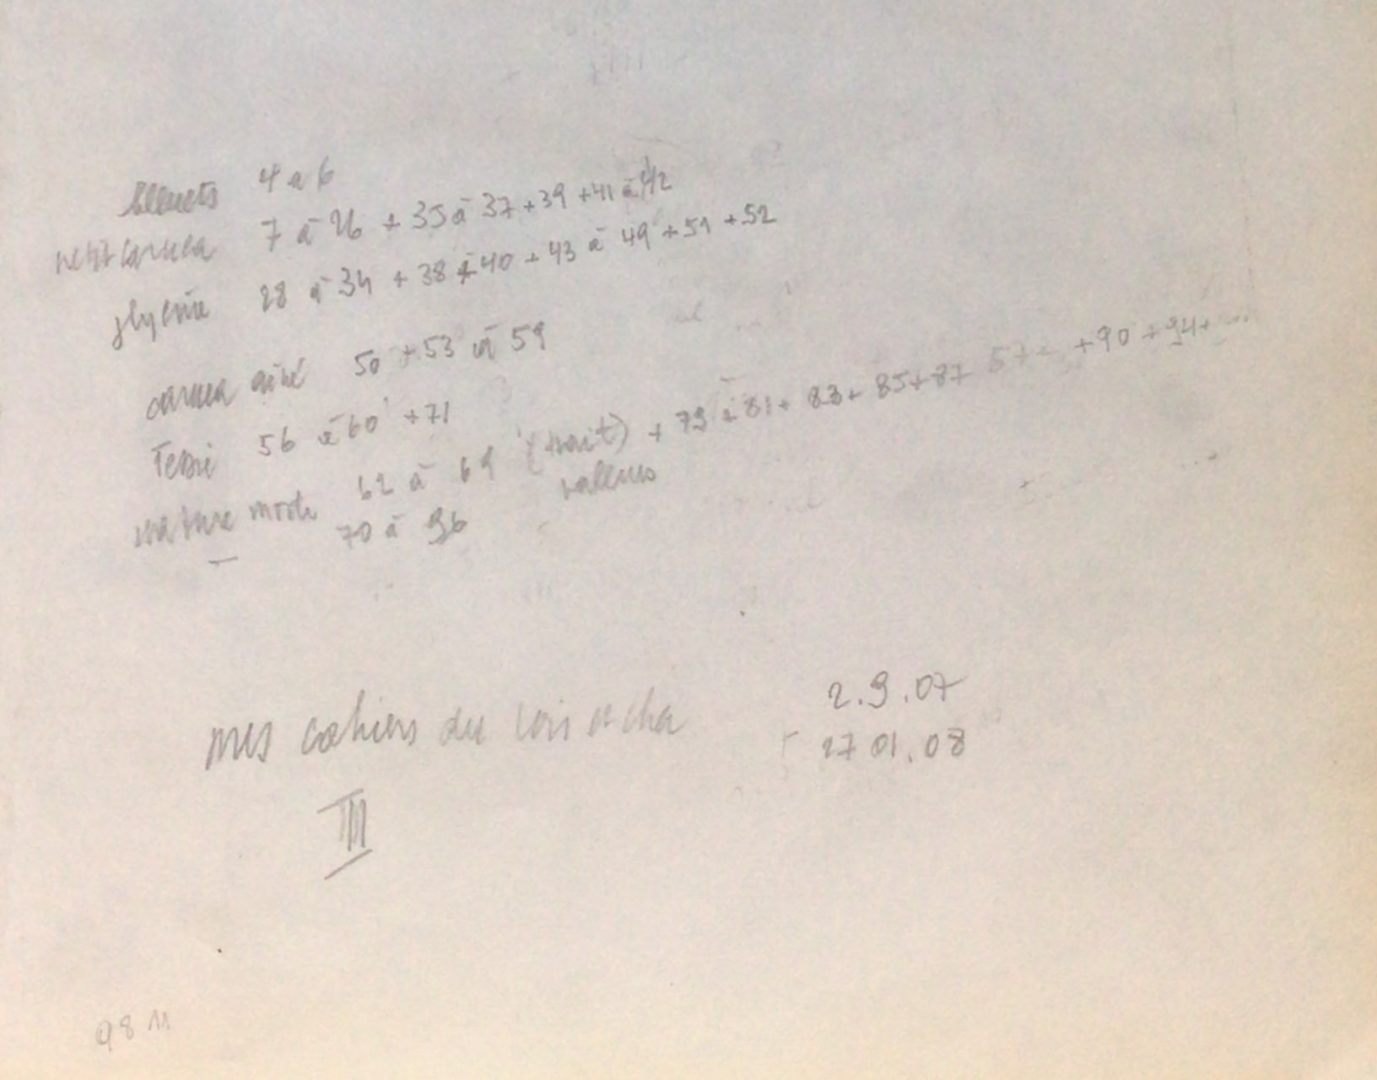 bleuets 4 a 6
petit carnea 7 à 26 + 35 à 37 + 39 + 41 à 42
glycine 28 à 34 + 38 à 40 + 43 à 49 + 51 + 52
carnea aîné 50 + 53 à 59
56 à 60 + 71
nature morte 62 à 69 (trait) + 79 à 81 + 83 + 85 + 87 + 90 + 94 + ...
70 à 96
mes cahiers du loir et cher
2.9.07
27 01.08
III